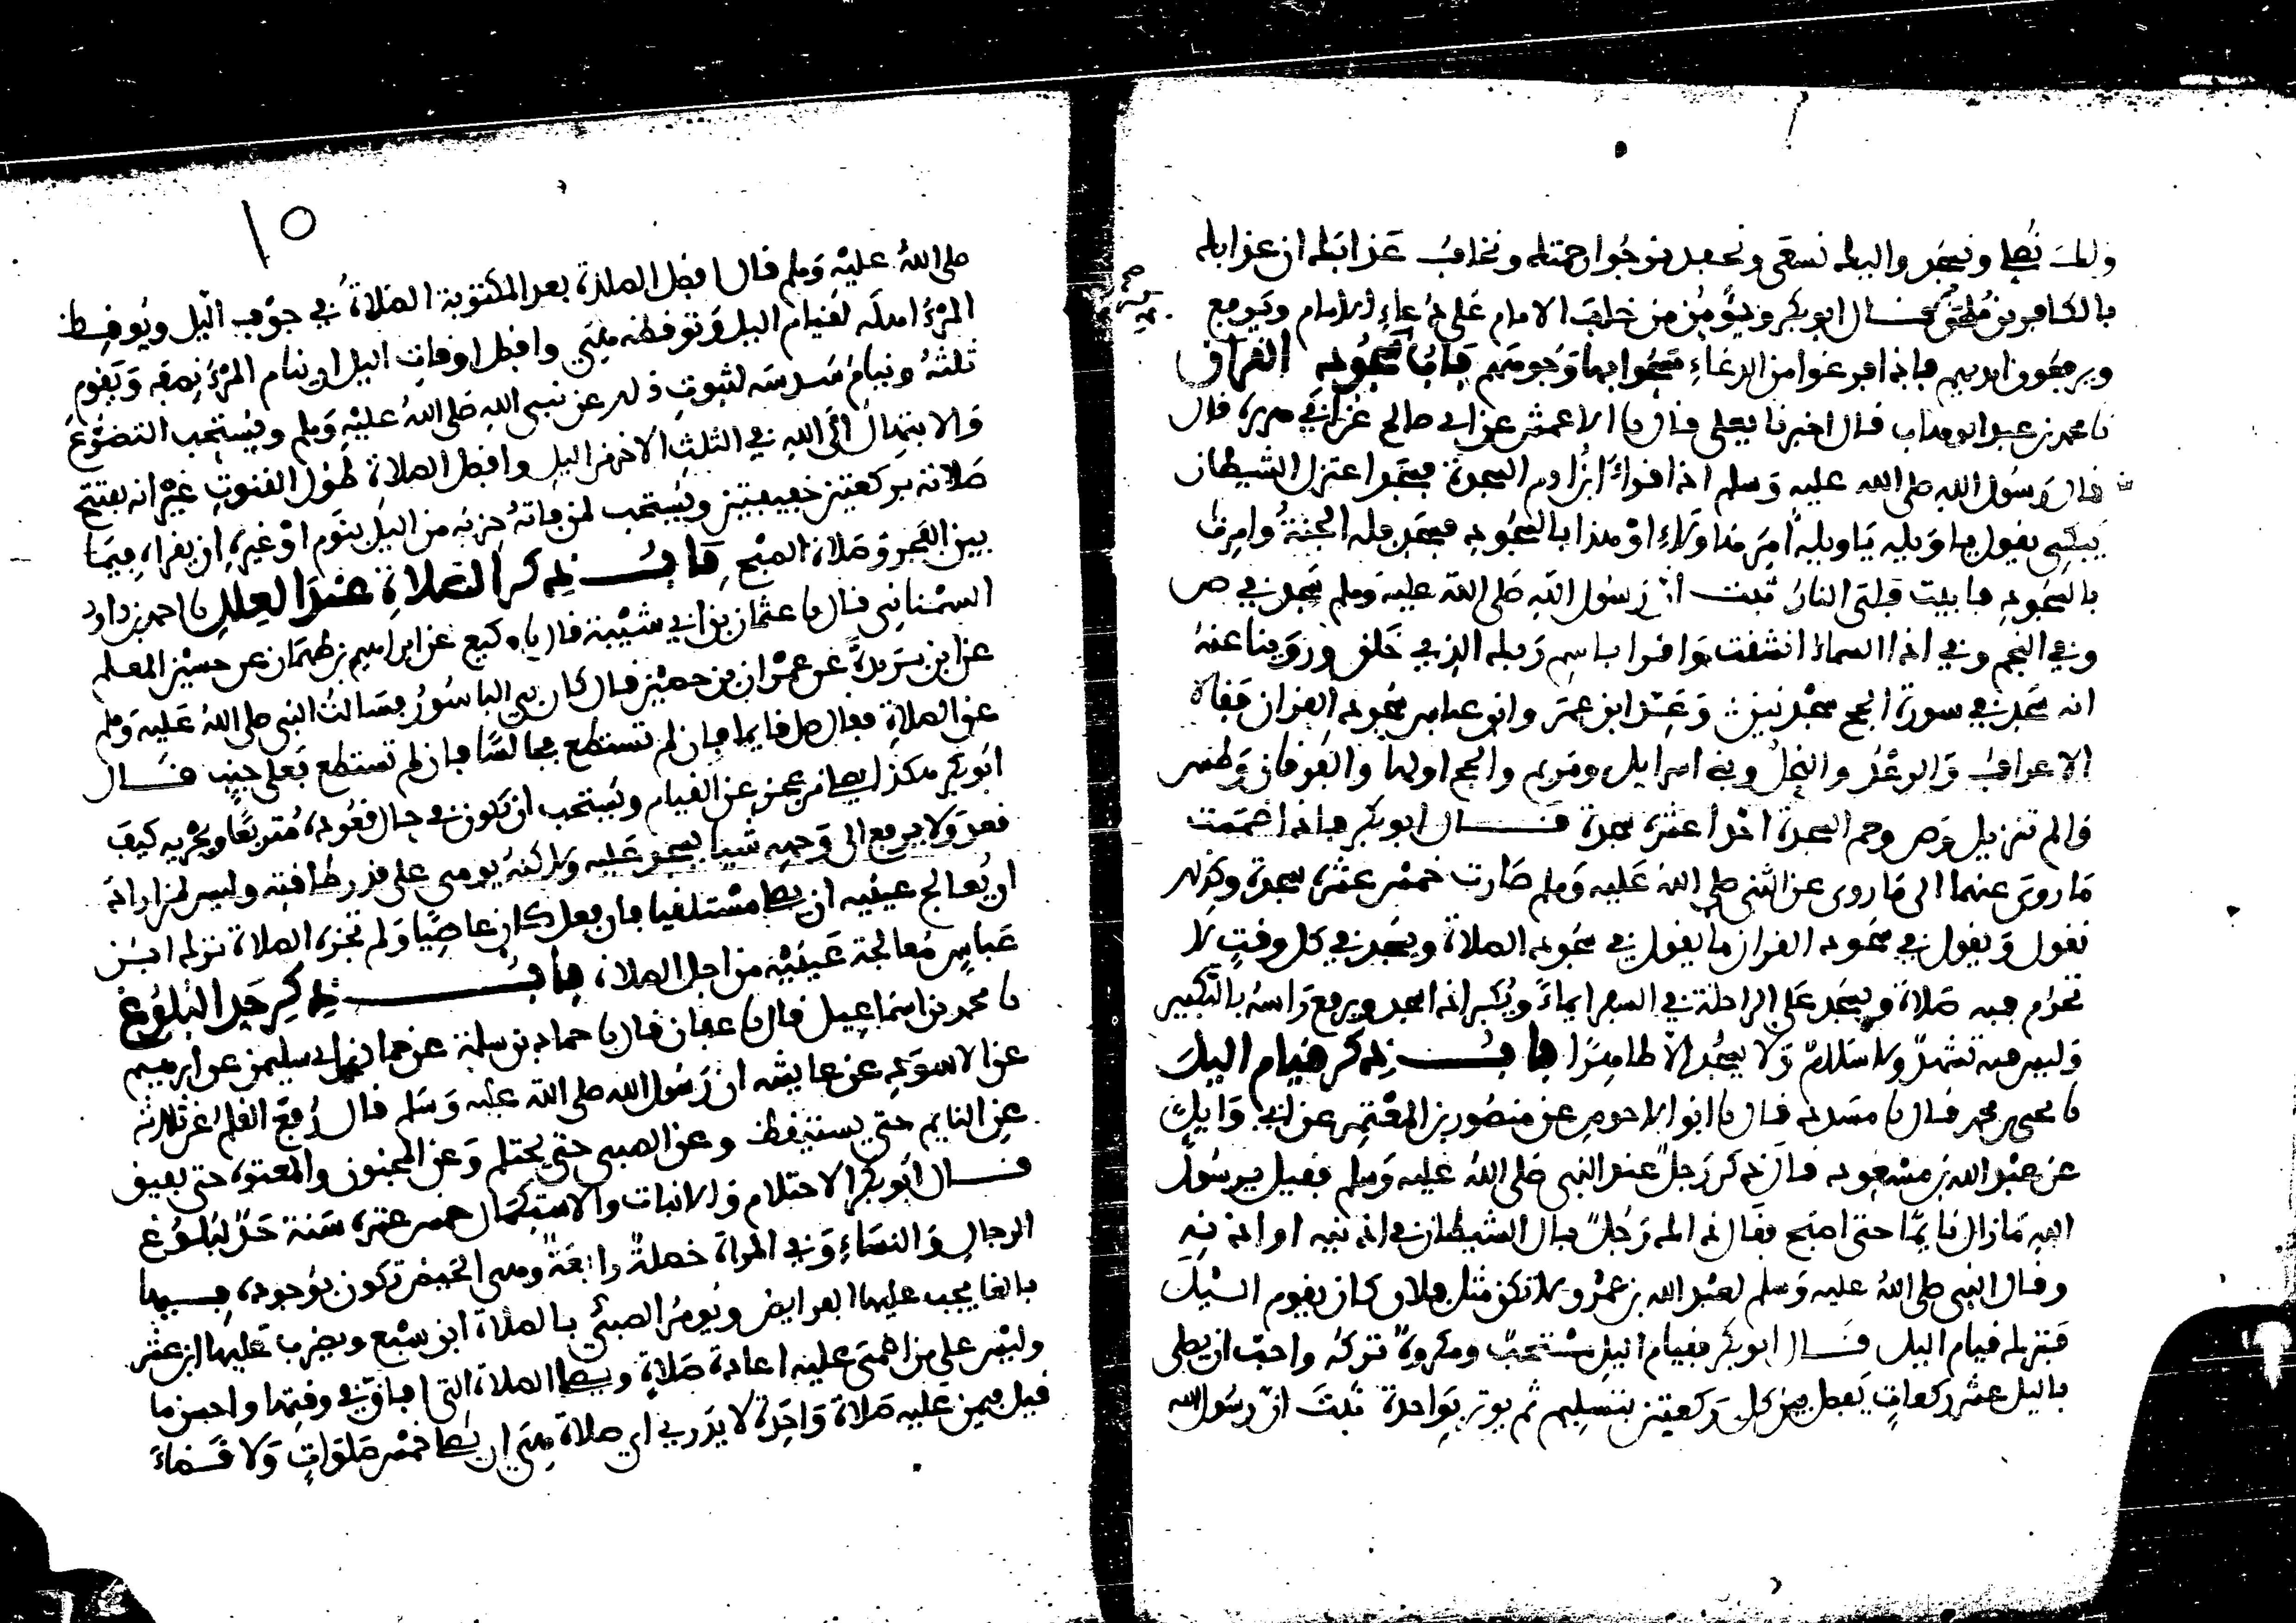 ولك نصلي ونسجد واليك نسعى ونحفد نرجوا رحمتك ونخاف عذابك ان عذابك
بالكافرين ملحق قال ابو بكر ويؤمن من خلف الامام على دعاء الامام ويرفع
ويرفعون ايديهم فاذا فرغوا من الدعاء مسحوا بها وجوههم باب سجود القرآن
نا محمد بن عبد الوهاب قال اخبرنا يعلى قال نا الاعمش عن ابي صالح عن ابي هريرة قال
قال رسول الله صلى الله عليه وسلم اذا قرأ ابن ادم السجدة فسجد اعتزل الشيطان
يبكي يقول يا ويله يا ويله امر هذا ولاء او هذا بالسجود فسجد فله الجنة وامرت
بالسجود فابيت فلي النار ثبت ان رسول الله صلى الله عليه وسلم سجد في ص
وفي النجم وفي اذا السماء انشقت واقرا باسم ربك الذي خلق وروينا عنه
انه سجد في سورة الحج سجدتين وعد ابن عمر وابن عباس سجود القران فقالا
الاعراف والرعد والنحل وبني اسرايل ومريم والحج اولها والفرقان وطس
والم تنزيل وص وحم السجدة احدا عشرة سجدة قال ابو بكر فاذا ضممت
ما روي عنهما الى ما روي عن النبي صلى الله عليه وسلم صارت خمس عشرة سجدة وكذلك
نقول ويقول في سجود القران ما يقول في سجود الصلاة ويسجد في كل وقت لا
تحرم فيه صلاة ويسجد على الراحلة في السفر ايماء ويكبر اذا سجد ويرفع راسه بالتكبير
وليس فيه تشهد ولا سلام ولا يسجد الا طاهرا باب ذكر قيام الليل
نا يحيى بن محمد قال نا مسدد قال نا ابو الاحوص عن منصور بن المعتمر عن ابي وايل
عن عبد الله بن مسعود قال ذكر رجل عند النبي صلى الله عليه وسلم فقيل يرسول
الله ما زال نايما حتى اصبح فقال ذالك رجل بال الشيطان في اذنيه او اذنه
وقال النبي صلى الله عليه وسلم لعبد الله بن عمرو لا تكن مثل فلان كان يقوم الليل
فترك قيام الليل قال ابو بكر فقيام الليل مستحب ومكروه تركه واحب ان يصلي
بالليل عشر ركعات يفصل بين كل ركعتين بتسليم ثم يوتر بواحدة ثبت ان رسول الله
١٥
صلى الله عليه وسلم قال افضل الصلاة بعد المكتوبة الصلاة في جوف الليل ويوقظ
المرء اهله لقيام الليل وتوقظه هي وافضل اوقات الليل ان ينام المرء نصفه ويقوم
ثلثه وينام سدسه لثبوت ذلك عن نبي الله صلى الله عليه وسلم ويستحب التضرع
والابتهال الى الله في الثلث الاخر من الليل وافضل الصلاة طول القنوت غير انه يفتتح
صلاته بركعتين خفيفتين ويستحب لمن فاته حزبه من الليل بنوم او غيره ان يقراه فيما
بين الفجر وصلاة الصبح باب ذكر الصلاة عند العلل نا احمد بن داود
السمناني قال نا عثمان بن ابي شيبة قال نا وكيع عن ابراهيم بن طهمان عن حسين المعلم
عن ابن بريدة عن عمران بن حصين قال كان بي الباسور فسالت النبي صلى الله عليه وسلم
عن الصلاة فقال صل قايما فان لم تستطع فجالسا فان لم تستطع فعلى جنب قال
ابو بكر هكذا يصلي من عجز عن القيام ويستحب ان تكون في حال قعوده متربعا ويجزيه كيف
قعد ولا يرفع الى وجهه شيا يسجد عليه ولاكنه يومي على قدر طاقته وليس لمن اراد
ان يعالج عينيه ان يصلي مستلقيا فان فعل كان عاصيا ولم تجزه الصلاة ترك ابن
عباس معالجة عينيه من اجل الصلاة باب ذكر حد البلوغ
نا محمد بن اسماعيل قال نا عفان قال نا حماد بن سلمة عن حماد بن ابي سليمن عن ابرهيم
عن الاسود عن عايشه ان رسول الله صلى الله عليه وسلم قال رفع القلم عن ثلاثة
عن النايم حتى يستيقظ وعن الصبي حتى يحتلم وعن المجنون والمعتوه حتى يفيق
قال ابو بكر الاحتلام والانبات والاستكمال خمس عشرة سنة حد لبلوغ
الرجال والنساء وفي المراة خصلة رابعة وهي الحيض تكون بوجوده فيها
بالغا يجب عليها الفرايض ويومر الصبي بالصلاة ابن سبع ويضرب عليها ابن عشر
وليس على من اغمي عليه اعادة صلاة ويصلي الصلاة التي افاق في وقتها واحسن ما
قيل فيمن عليه صلاة واحدة لا يدري اي صلاة هي ان يصلي خمس صلوات ولا قضاء